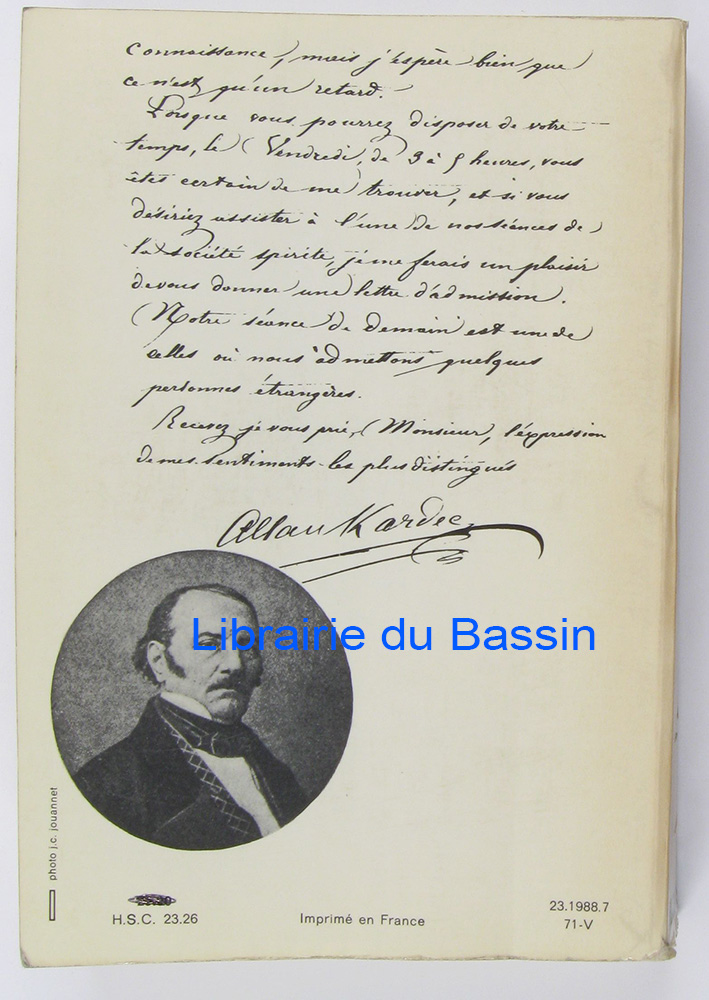 connaissance, mais j'espère bien que
ce n'est qu'un retard.
Lorsque vous pourrez disposer de votre
temps, le Vendredi, de 3 à 5 heures, vous
êtes certain de me trouver, et si vous
désiriez assister à l'une de nos séances de
la société spirite, je me ferais un plaisir
de vous donner une lettre d'admission.
Notre séance de demain est une de
celles où nous admettons quelques
personnes étrangères.
Recevez je vous prie, Monsieur, l'expression
de mes sentiments les plus distingués
Allan Kardec
Librairie du Bassin
photo j.c. jouannet
H.S.C. 23.26
Imprimé en France
23.1988.7
71-V